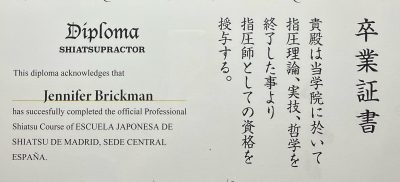 Diploma
SHIATSUPRACTOR
This diploma acknowledges that
Jennifer Brickman
has succesfully completed the official Professional
Shiatsu Course of ESCUELA JAPONESA DE
SHIATSU DE MADRID, SEDE CENTRAL
ESPAÑA.
卒業証書
貴殿は当学院に於いて
指圧理論、実技、哲学を
終了した事より
指圧師としての資格を
授与する。